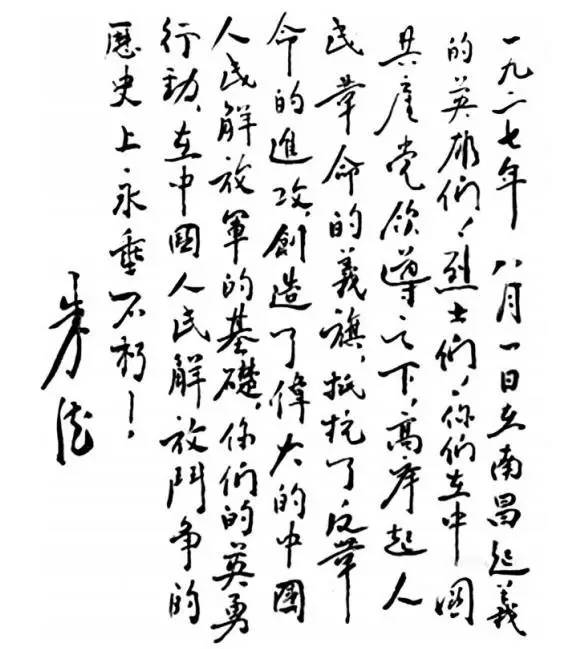 一九二七年八月一日在南昌起義
的英雄們！烈士們！你們在中國
共産党領導之下，高庠起人
民革命的義旗，抵抗了反革
命的進攻，創造了偉大的中國
人民解放軍的基礎，你們的英勇
行动，在中國人民解放鬥争的
歷史上永垂不朽！
朱德